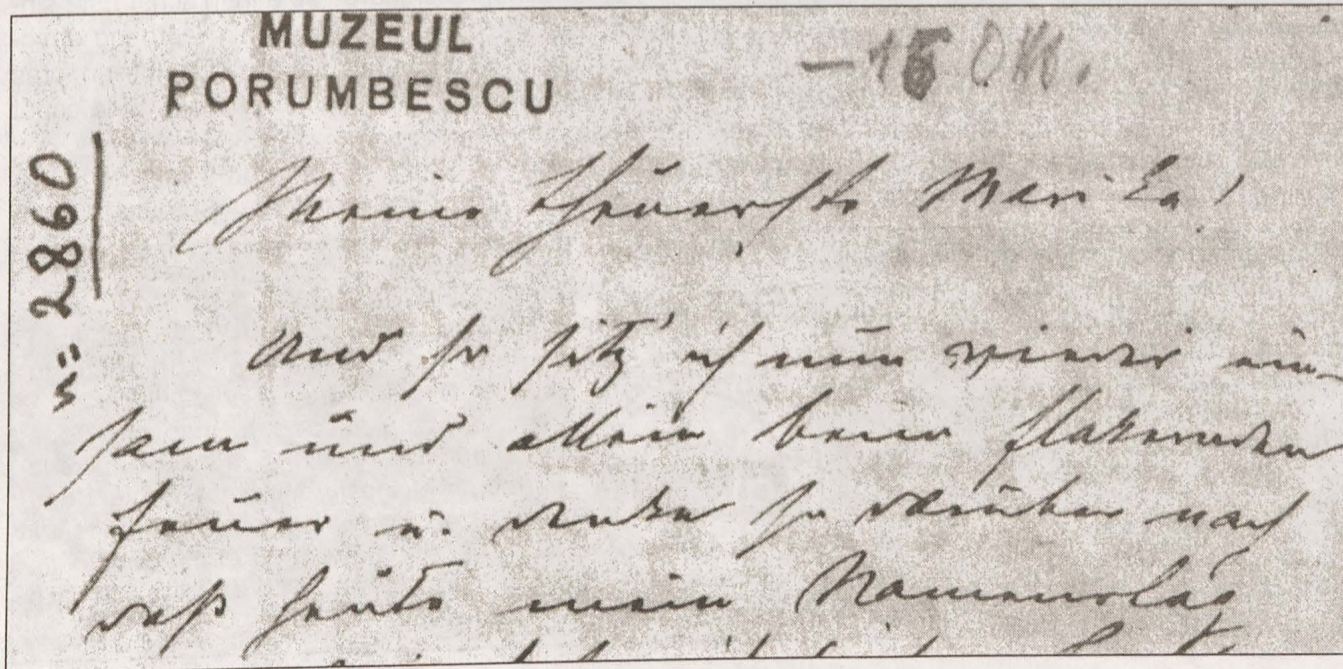 MUZEUL
PORUMBESCU
-15 Okt.
n= 2860
Meine theuerste Marika!
Und so sitz' ich nun wieder ein-
sam und allein beim flakernden
Feuer u. denke so darüber nach
daß heute mein Namenstag